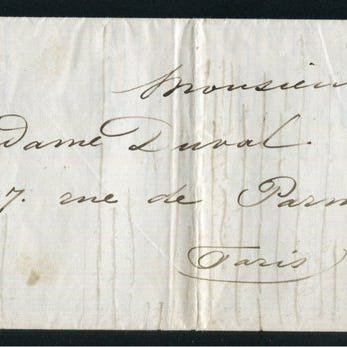 Monsieu
dame Duval.
7. rue de Parm
Paris